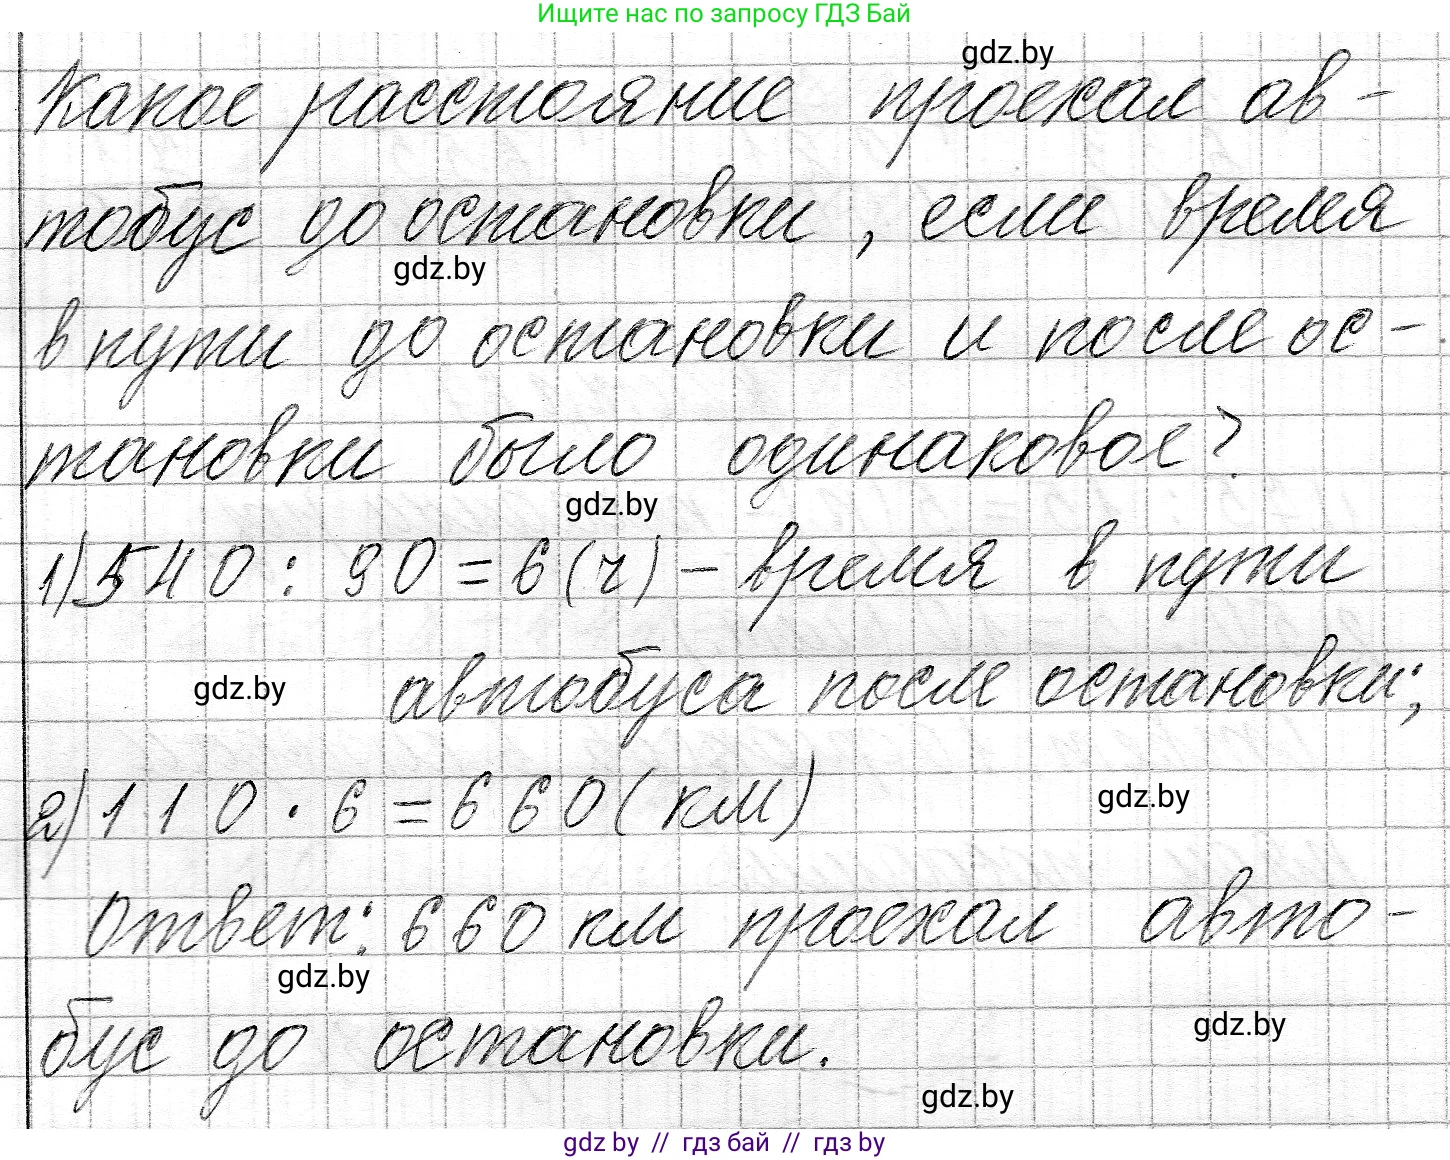 Ищите нас по запросу ГДЗ Бай
gdz.by
Какое расстояние проехал ав-
тобус до остановки, если время
gdz.by
в пути до остановки и после ос-
тановки было одинаковое?
gdz.by
1) 540 : 90 = 6 (ч) - время в пути
gdz.by автобуса после остановки;
2) 110 · 6 = 660 (км)
gdz.by
Ответ: 660 км проехал авто-
gdz.by
бус до остановки.
gdz.by
gdz.by
gdz.by // гдз бай // гдз by